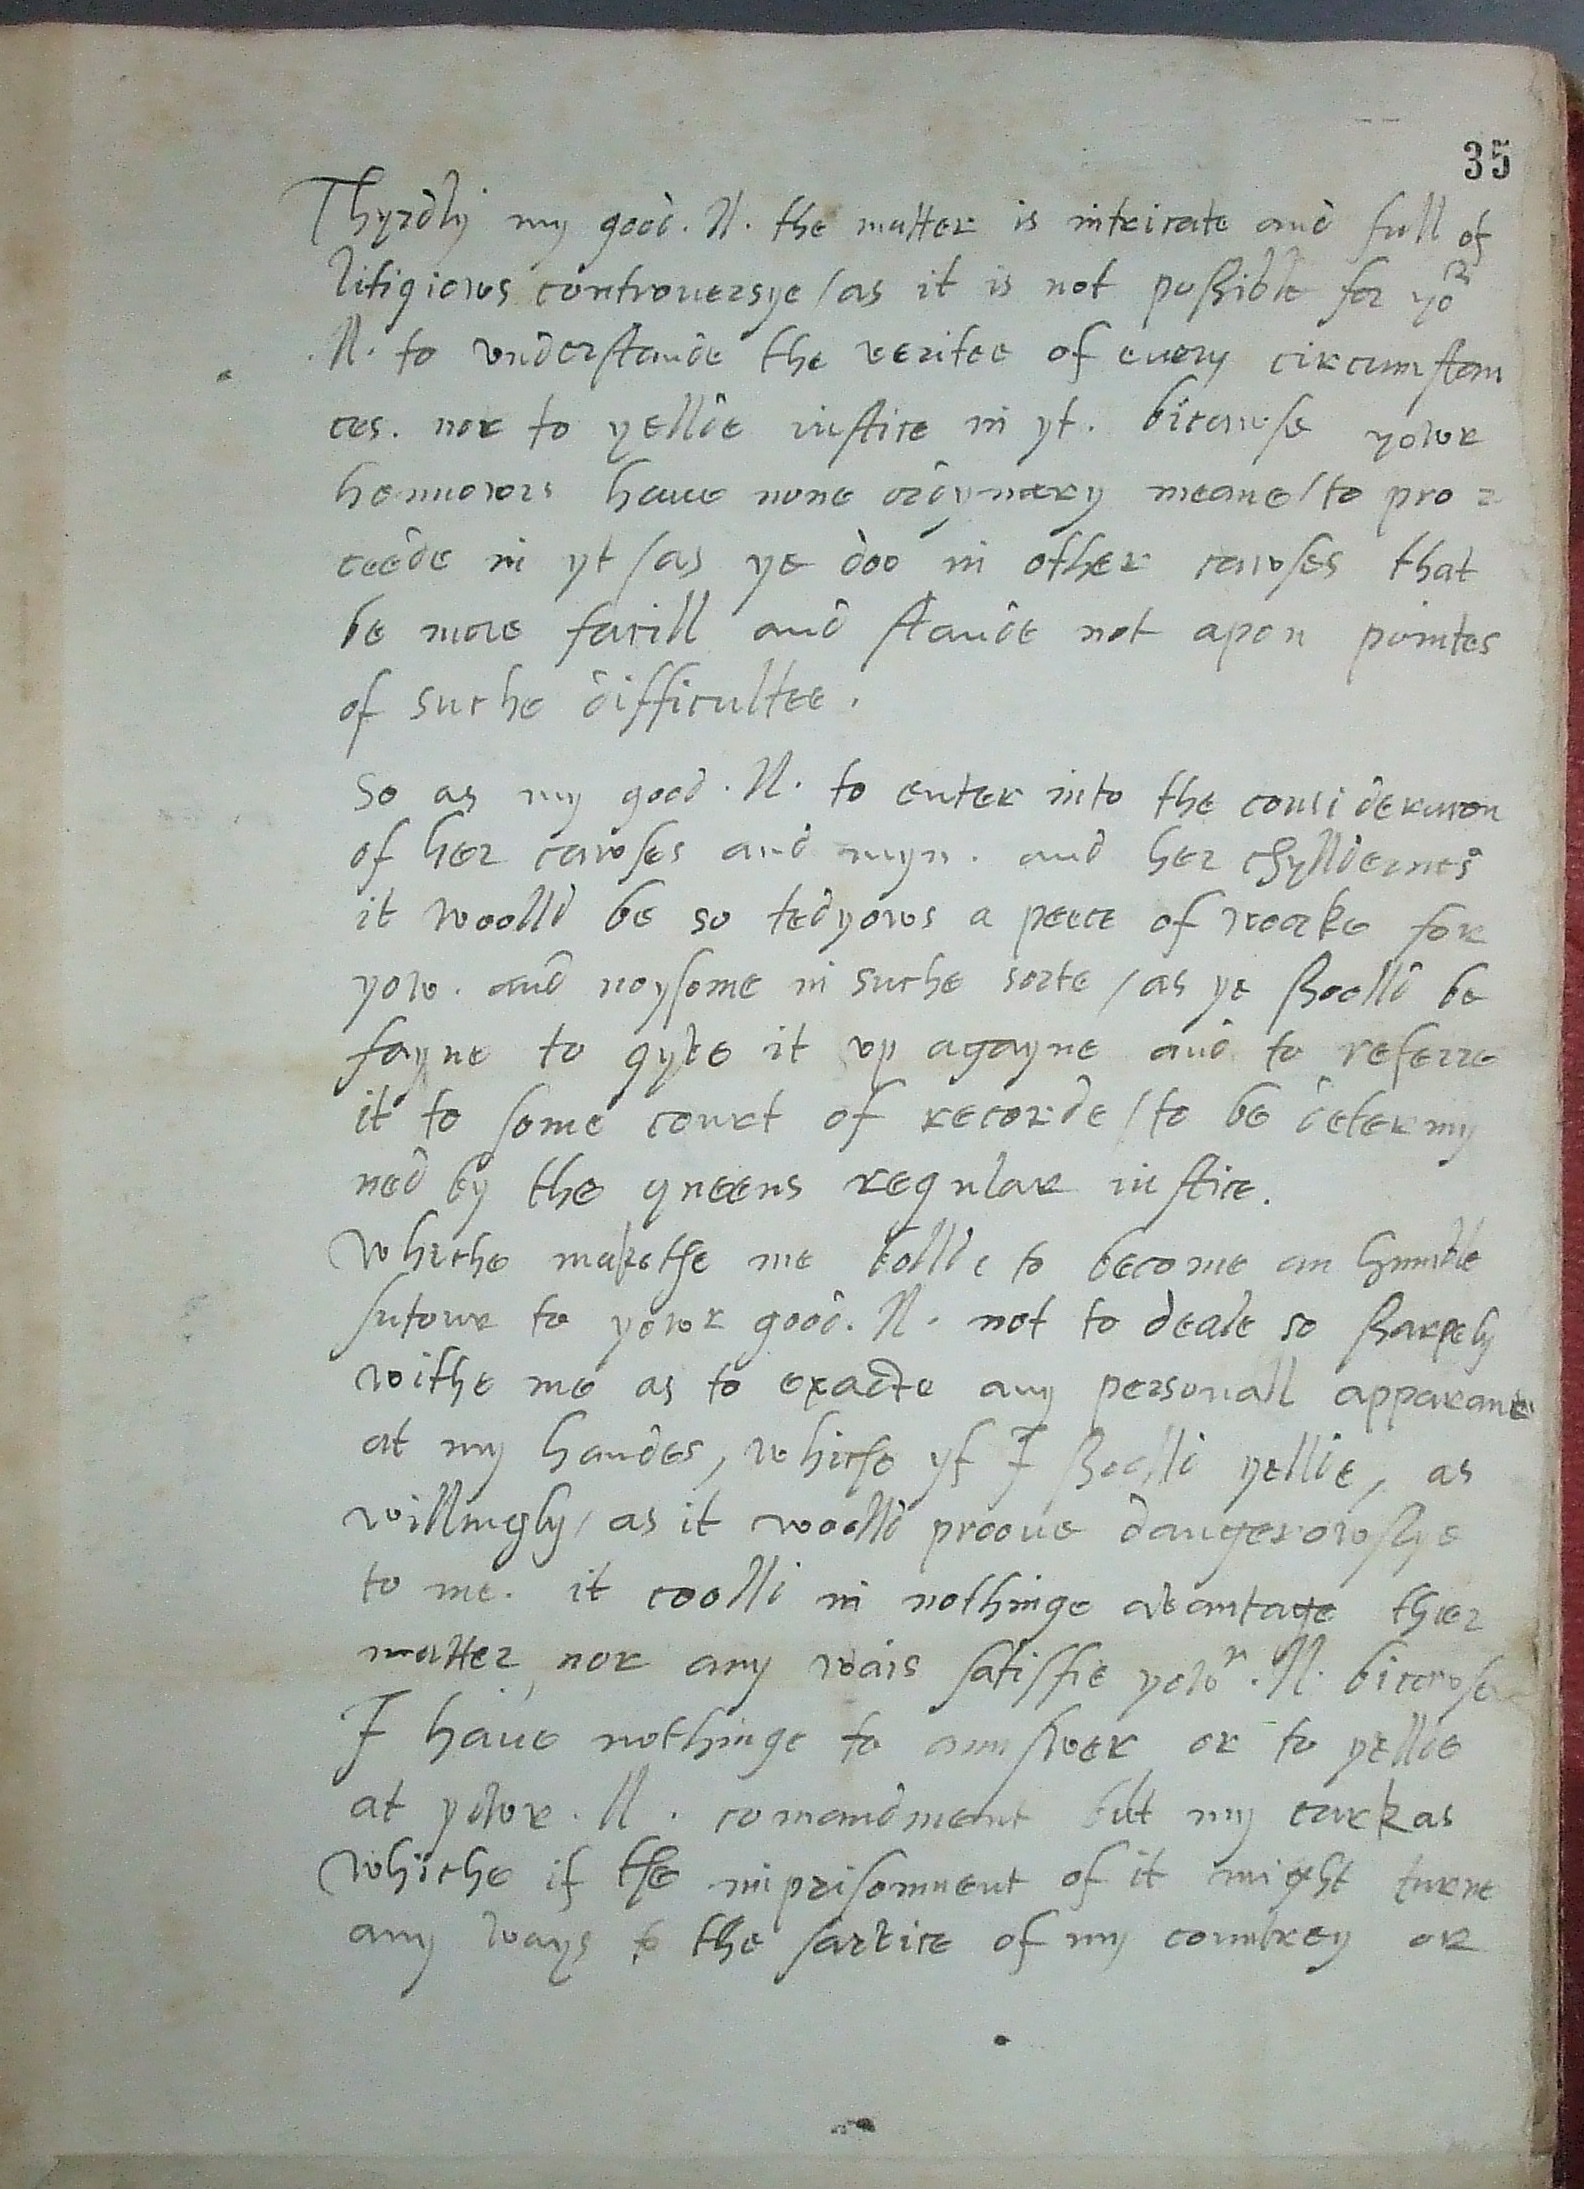 35
Thyrdly my good . ll . the matter is intricate and full of
litigiows controuersye / as it is not possible for yor
. ll . to vnderstande the veritee of euery circumstan
ces . nor to yellde iustice in yt . bicawse yowr
honnowrs haue none ordynary meane / to pro =
ceede in yt / as ye doo in other cawses that
be more facill and stande not apon pointes
of suche difficultee .
So as my good . ll . to enter into the consideracion
of her cawses and myn . and her chylldernes
it woolld be so tedyows a peece of worke for
yow . and noysome in suche sorte / as ye shoolld be
fayne to gyve it vp agayne and to referre
it to some court of recorde / to be determy
ned by the queens regular iustice .
Whiche makethe me bollde to become an humble
sutour to yowr good . ll . not to deale so sharpely
withe me as to exacte any personall apparance
at my handes , whiche yf I shoolld yellde , as
willingly / as it woolld prooue dangerowslye
to me . it coolld in nothinge avantage thier
matter , nor any wais satisfie yowr . ll . bicawse
I haue nothinge to aunswer or to yellde
at yowr . ll . comandment but my carkas
whiche if the imprisonment of it might turne
any ways to the service of my countrey or